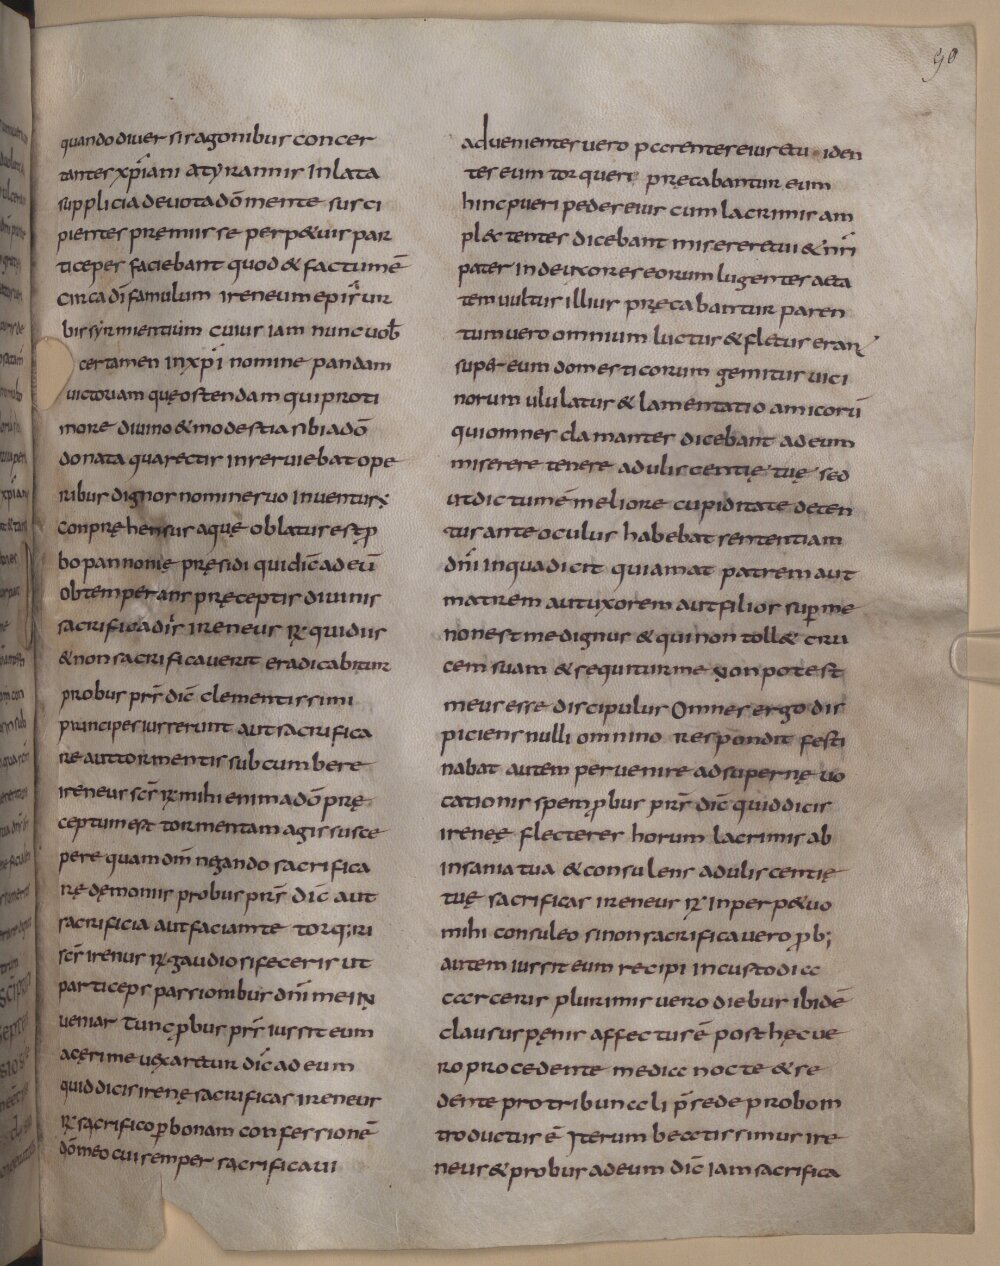 90
quando diuersis agonibus concer
tantes xp̄iani a tyrannis inlata
supplicia deuota dō mente susci
pientes premiis se perp&uis par
ticepes faciebant quod & factum ē
circa dī famulum ireneum epīs ur
bis syrmientium cuius iam nunc uob̄
certamen in xp̄i nomine pandam
uictoriam quę ostendam qui proti
more diuino & modestia sibi a dō
donata qua rectis inseruiebat ope
ribus dignos nomine suo inuentus &
conprę hensus aquę oblatus est p̄
bo pannonię pręsidi qui dic̄ ad eū
obtemperans pręceptis diuinis
sacrifica diīs ireneus r̄ quidiis
& non sacrificauerit eradicabitur
probus prs̄ dic̄ clementissimi
principes iusserunt aut sacrifica
re aut tormentis subcumbere
ireneus scs̄ r̄ mihi enim a dō pre
ceptum est tormenta magis susce
pere quam dm̄ ngando sacrifica
rę dęmoniis probus prs̄ dic̄ aut
sacrificia aut faciam te torq;ri
scs̄ irenus r̄ gaudio si feceris ut
particeps passionibus dnī mei in
ueniar Tunc p̄bus prs̄ iussit eum
acerime uexaretur dic̄ ad eum
quid dicis irenę sacrificas ireneus
r̄ sacrifico p bonam confessionē
dō meo cui semper sacrificaui
aduenientes uero parentes eius et uiden
tes eum torquere pręcabantur eum
hinc pueri pedes eius cum lacrimis am
plectentes dicebant miserere tui & nr̄i
pater inde uxores eorum lugentes aeta
tem uultus illius pręcabantur paren
tum uero omnium luctus & fletus erant
super eum domesticorum gemitus uici
norum ululatus & lamentatio amicorū
qui omnes clamantes dicebant ad eum
miserere tenere adulis centię tuę sed
ut dictum ē meliore cupiditate deten
tus ante oculus habebat sententiam
dnī in qua dicit qui amat patrem aut
matrem aut uxorem aut filios sup me
non est me dignus & qui non toll& cru
cem suam & sequitur me non potest
meus esse discipulus Omnes ergo dis
piciens nulli omnino respondit festi
nabat autem peruenire ad supernę uo
cationis spem p̄bus prs̄ dic̄ quid dicis
irenęe flecteres horum lacrimis ab
insania tua & consulens adulis centię
tuę sacrificas ireneus r̄ in perp&uo
mihi consuleo si non sacrificauero p̄b;
autem iussit eum recipi in custodia
carceris plurimis uero diebus ibidē
clausus pęnis affectus ē post hęc ue
ro procedente media nocte & se
dente pro tribunali p̄sede probo in
troductus ē Iterum beatissimus ire
neus & probus ad eum dic̄ iam sacrifica